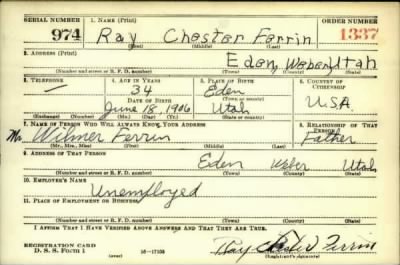 SERIAL NUMBER 1. NAME (Print) ORDER NUMBER
974 Ray Chester Ferrin 1337
(First) (Middle) (Last)
2. ADDRESS (Print)
Eden, Weber, Utah
(Number and street or R. F. D. number) (Town) (County) (State)
3. TELEPHONE 4. AGE IN YEARS 5. PLACE OF BIRTH 6. COUNTRY OF CITIZENSHIP
— 34 Eden
DATE OF BIRTH (Town or county)
June 18, 1906 Utah U.S.A.
(Exchange) (No.) (Mo.) (Day) (Yr.) (State or country)
7. NAME OF PERSON WHO WILL ALWAYS KNOW YOUR ADDRESS 8. RELATIONSHIP OF THAT PERSON
Mr. Wilmer Ferrin Father
(Mr., Mrs., Miss) (First) (Middle) (Last)
9. ADDRESS OF THAT PERSON
Eden Weber Utah
(Number and street or R. F. D. number) (Town) (County) (State)
10. EMPLOYER'S NAME
Unemployed
11. PLACE OF EMPLOYMENT OR BUSINESS
(Number and street or R. F. D. number) (Town) (County) (State)
I AFFIRM THAT I HAVE VERIFIED ABOVE ANSWERS AND THAT THEY ARE TRUE.
REGISTRATION CARD
D. S. S. Form 1 (over) Ray Chester Ferrin
(Registrant's signature)